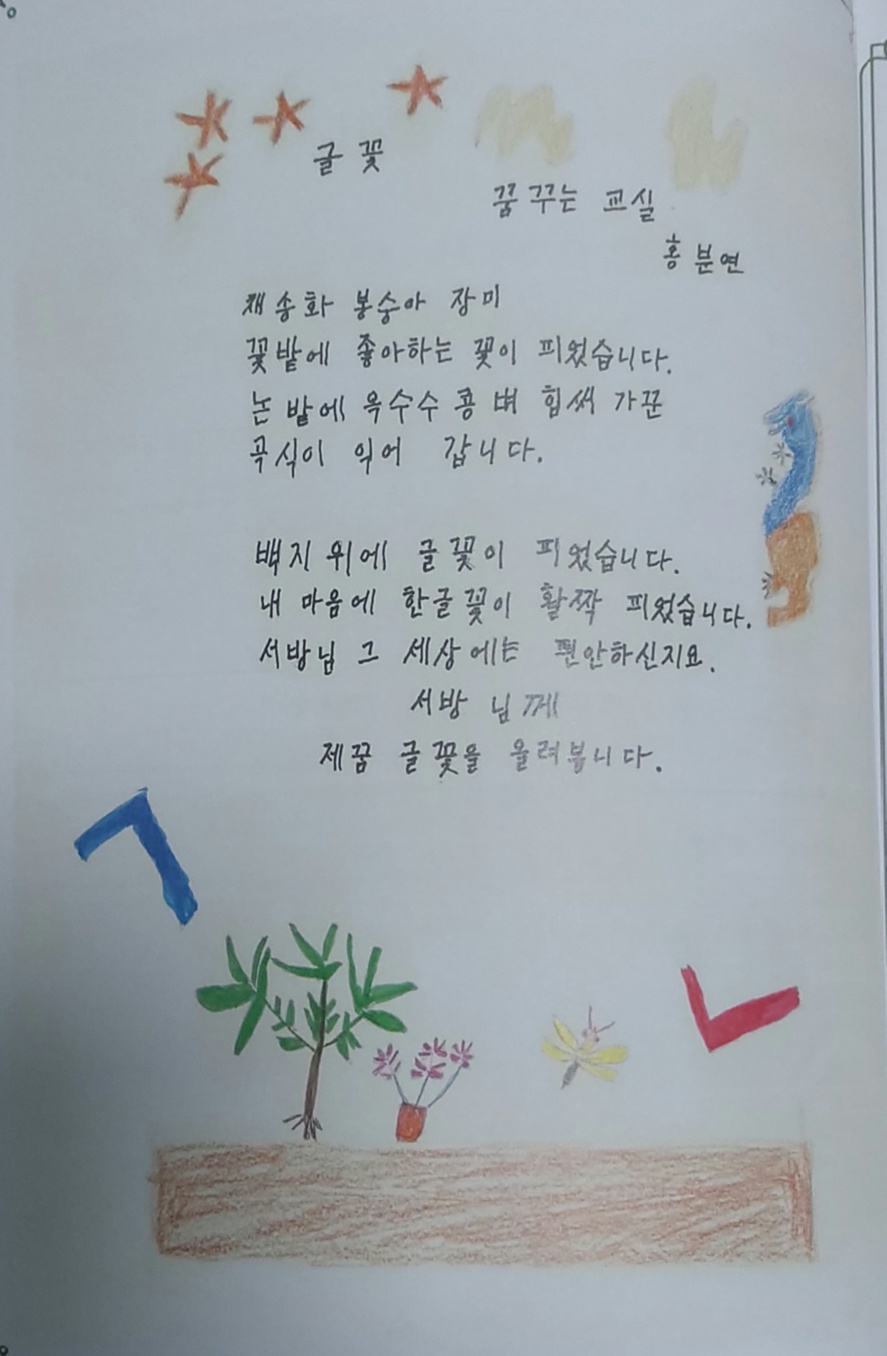 글꽃
꿈꾸는 교실
홍분연
채송화 봉숭아 장미
꽃밭에 좋아하는 꽃이 피었습니다.
논 밭에 옥수수 콩 벼 힘써 가꾼
곡식이 익어 갑니다.
백지 위에 글꽃이 피었습니다.
내 마음에 한글꽃이 활짝 피었습니다.
서방님 그 세상에는 편안하신지요.
서방 님께
제꿈 글꽃을 올려봅니다.